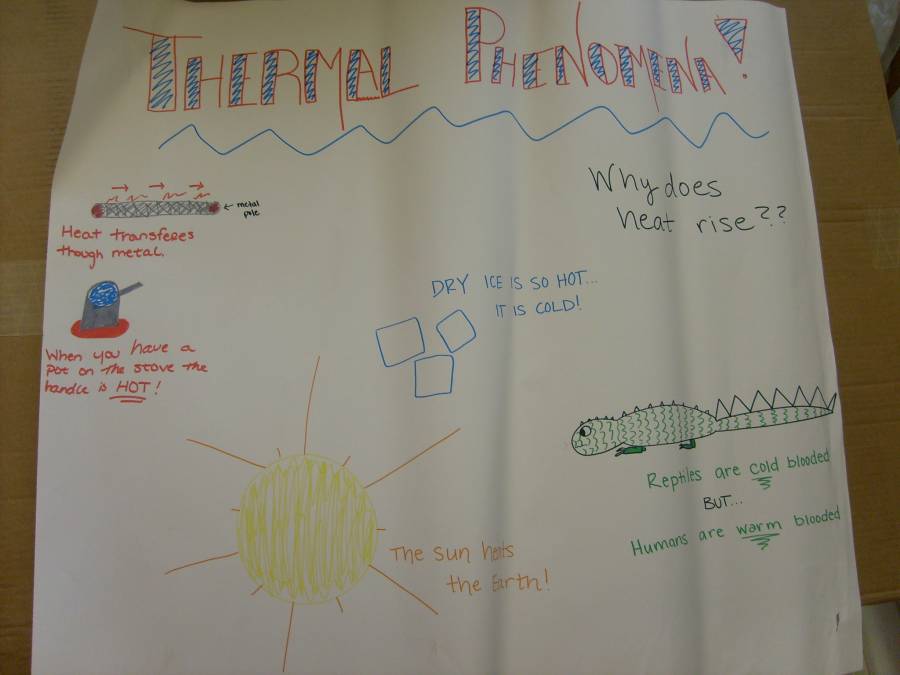 THERMAL PHENOMENA!
← metal
pole
Heat transferes
though metal.
When you have a
pot on the stove the
handle is HOT!
Why does
heat rise??
DRY ICE IS SO HOT...
IT IS COLD!
The sun heats
the Earth!
Reptiles are cold blooded
BUT...
Humans are warm blooded